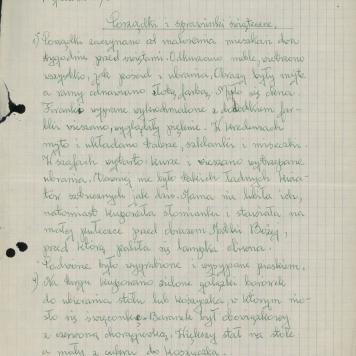 Porządki i sprawunki świąteczne.
1) Porządki zaczynano od malowania mieszkań dwa
tygodnie przed świętami. Odkurzano meble, wietrzono
wszystko, jak pościel i ubrania. Obrazy były myte
a ramy odnawiano złotą farbą. Myło się okna.
Firanki wyprane wykrochmalone z dodatkiem far-
bki wieszano, wyglądały pięknie. W kredensach
myto i układano talerze, szklanki i miseczki.
W szafach wytarto kurze i wieszano wytrzepane
ubrania. Dawniej nie było takich ładnych kwia-
tów sztucznych jak dziś. Mama nie lubiła ich,
natomiast kupowała słomianki i stawiała na
małej półeczce przed obrazem Matki Bożej,
przed którą paliła się lampka oliwna.
Podwórze było wygrabione i wysypane piaskiem.
2) Na targu kupowano zielone gałązki borówek
do ubierania stołu lub koszyczka, w którym nio-
sło się święconkę. Baranek był obowiązkowy
z czerwoną chorągiewką. Większy stał na stole
a mały z cukru do koszyczka.